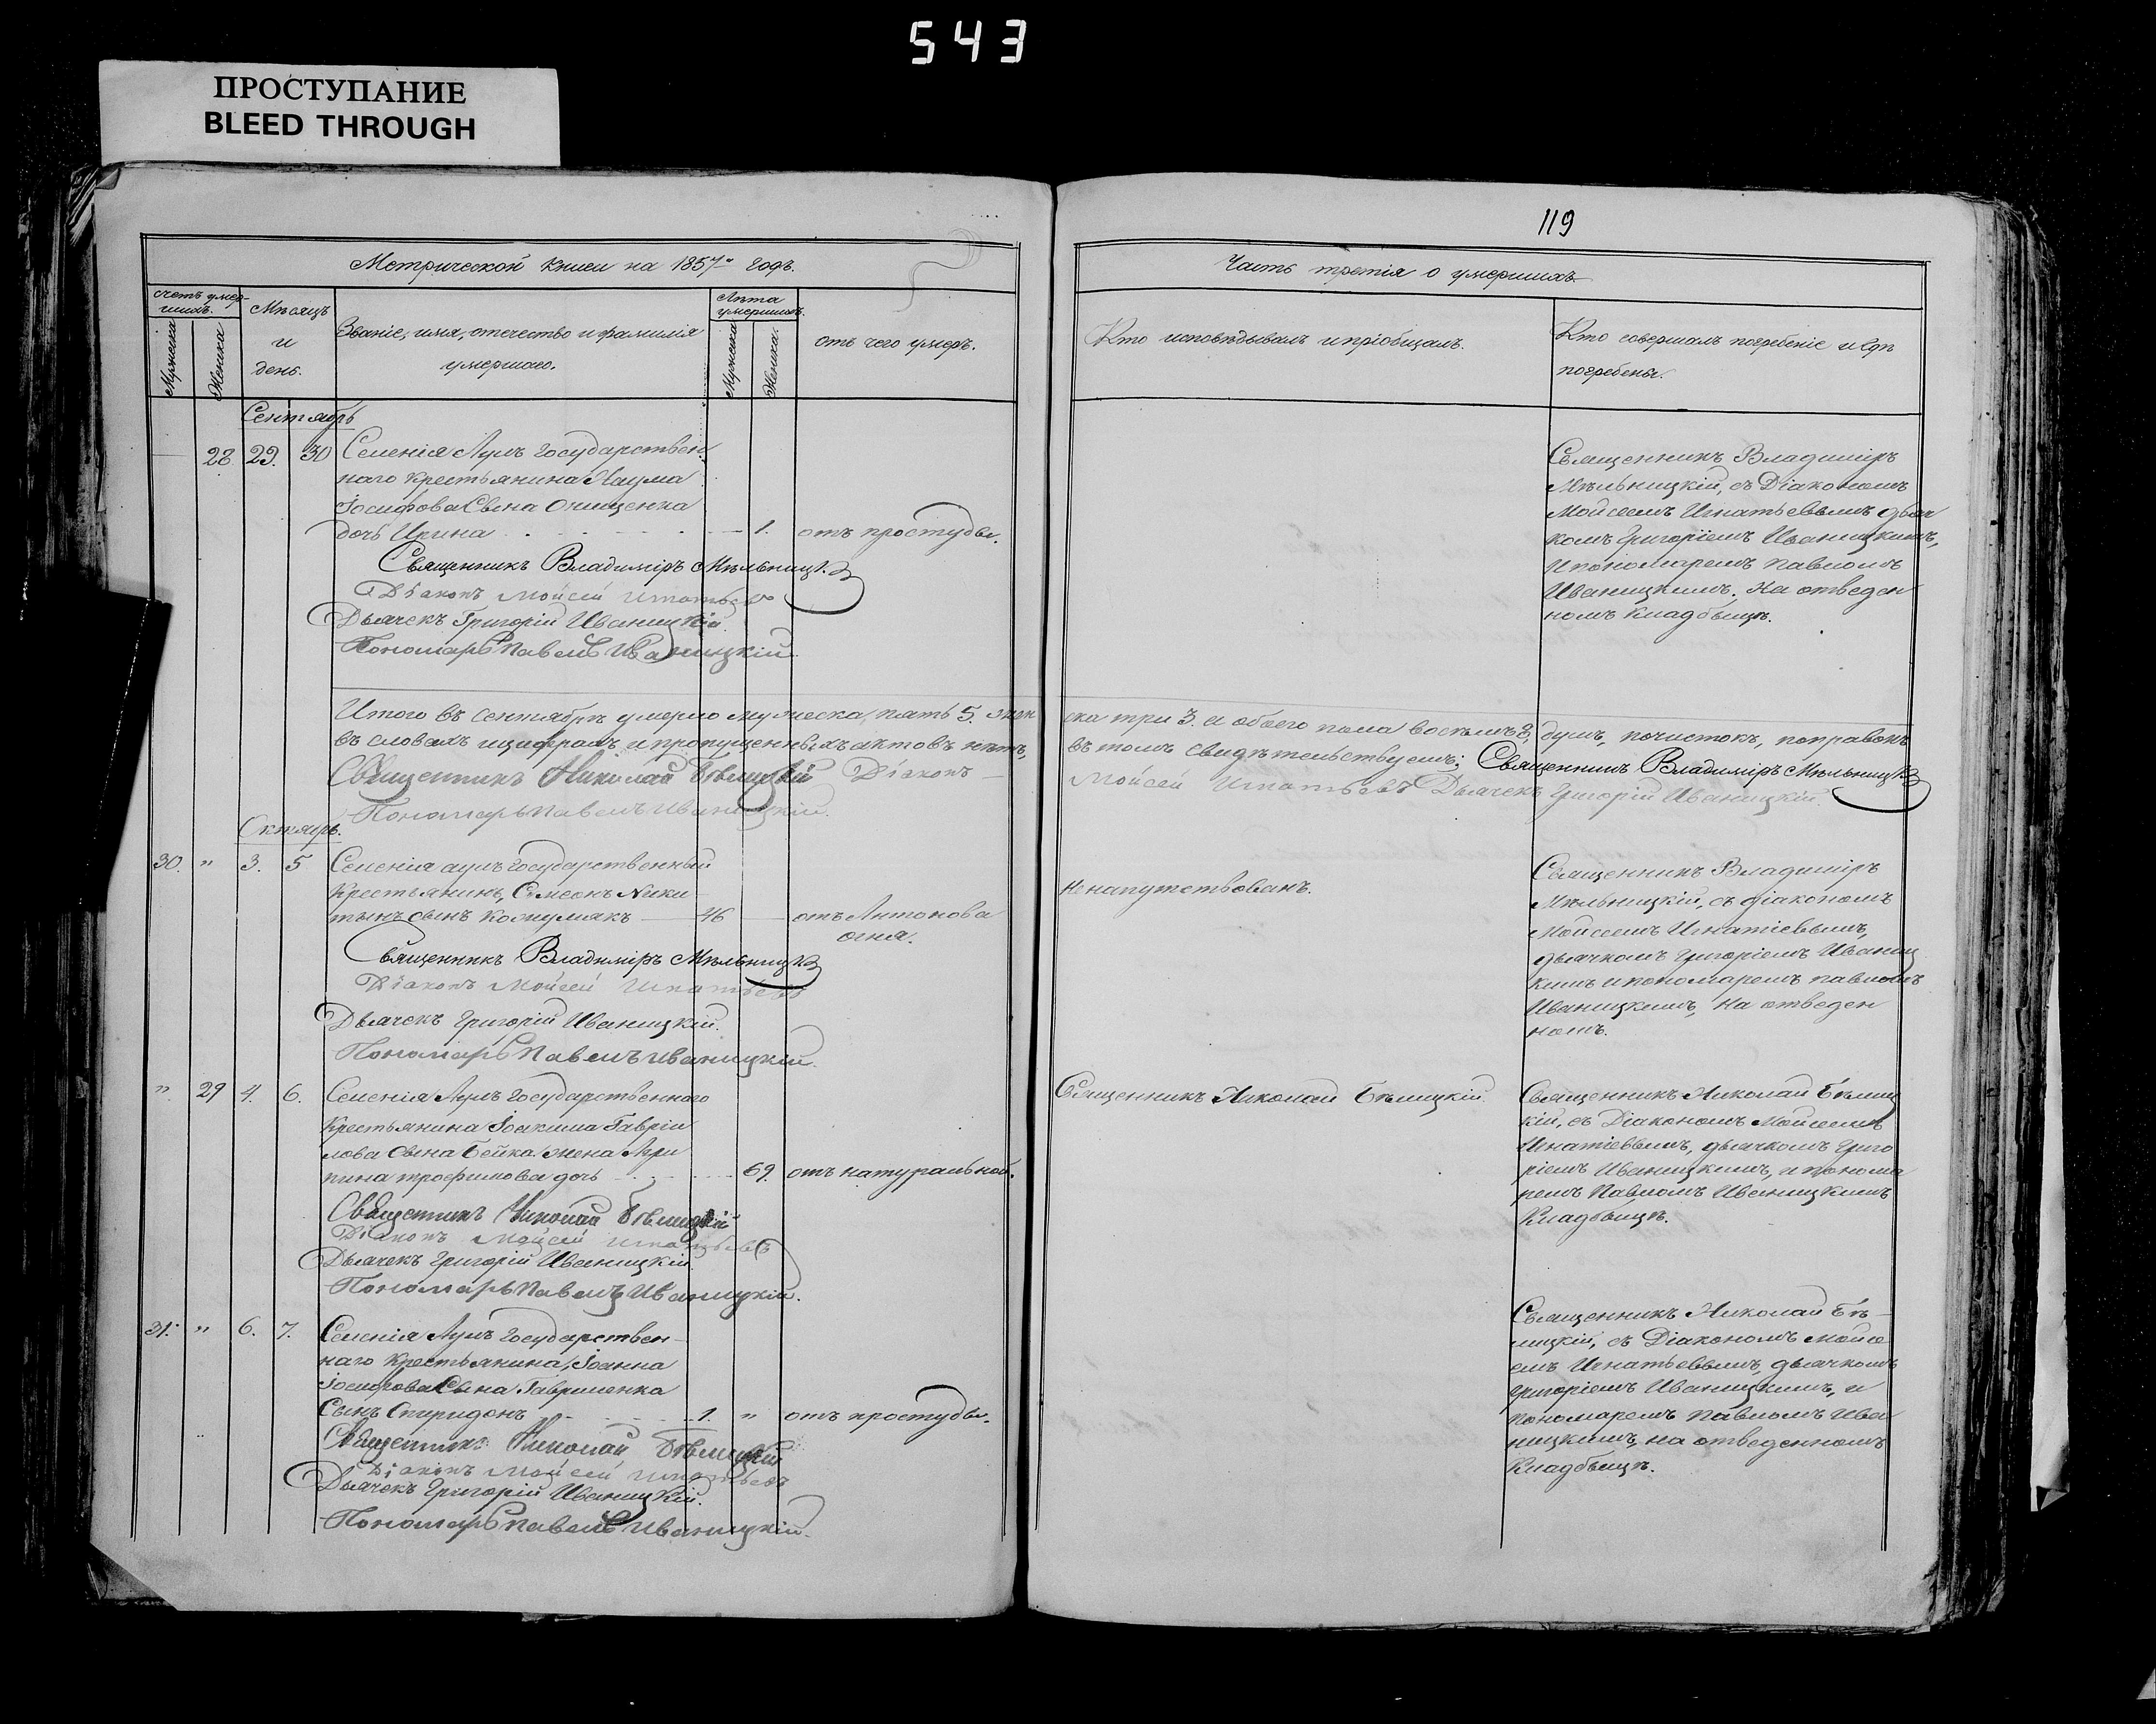 543
ПРОСТУПАНИЕ
BLEED THROUGH
119
Метрической Книги на 1857й годъ.
счетъ умер-
шихъ.
Мужеска
Женска
Мѣсяцъ
и
день.
Званіе, имя, отечество и фамилія
умершаго.
Лѣта
умершихъ.
Мужеска
Женска.
отъ чего умеръ.
Сентябрь
28 29. 30 Селенія Аулъ Государствен
наго Крестьянина Наума
Іосифова Сына Онищенка
дочь Ирина 1. отъ простуды.
Священникъ Владиміръ Мѣльницк
Діаконъ Мойсей Игнатьевъ
Дьячекъ Григорій Иваницкій
Пономарь Павелъ Иваницкій
Итого въ сентябрѣ умерло мужеска, пять 5. жен
въ словахъ и цифрахъ и пропущенныхъ актовъ нѣтъ,
Священникъ Николай Бѣлицкій Діаконъ
Пономарь Павелъ Иваницкій.
Октябрь.
30. " 3. 5 Селенія аулъ Государственный
Крестьянинъ, Сѵмеонъ Ники
тинъ сынъ 46 — отъ Антонова
огня.
Священникъ Владиміръ Мѣльницк
Діаконъ Мойсей Игнатьевъ
Дьячекъ Григорій Иваницкій.
Пономарь Павелъ Иваницкій.
" 29 4. 6. Селенія Аулъ Государственнаго
Крестьянина Іоакима Гаврiи
лова Сына Бейка жена Агри
пина трофимова дочь 69. отъ натуральной.
Священникъ Николай Бѣлицкій
Діаконъ Мойсей Игнатьевъ
Дьячекъ Григорій Иваницкій
Пономарь Павелъ Иваницкій.
31. " 6. 7. Селенія Аулъ Государствен-
наго Крестьянина, Іоанна
Іосифова Сына Гавриленка
Сынъ Спиридонъ 1. " отъ простуды.
Священникъ Николай Бѣлицкій
Діаконъ Мойсей Игнатьевъ
Дьячекъ Григорій Иваницкій.
Пономарь Павелъ Иваницкій.
Часть третія о умершихъ
Кто исповѣдывалъ и пріобщалъ.
Кто совершалъ погребеніе и гдѣ
погребены.
Священникъ Владиміръ
Мѣльницкій, съ Діакономъ
Мойсеемъ Игнатьевымъ дьяч
комъ Григоріемъ Иваницкимъ,
и пономаремъ Павломъ
Иваницкимъ. На отведен
номъ кладбищѣ.
ска три 3. и обоего пола восемъ 8, душъ, почистокъ, поправокъ
въ томъ свидѣтельствуемъ; Священникъ Владиміръ Мѣльницк
Мойсей Игнатьевъ Дьячекъ Григорій Иваницкій.
Не напутствованъ.
Священникъ Владиміръ
Мѣльницкій, съ діакономъ
Мойсеемъ Игнатіевымъ,
дьячкомъ Григоріемъ Иваниц
кимъ и пономаремъ павломъ
Иваницкимъ, На отведен
номъ.
Священникъ Николай Бѣлицкій.
Священникъ Николай Бѣлиц
кій, съ Діакономъ Мойсеемъ
Игнатіевымъ, дьячкомъ Григо
ріемъ Иваницкимъ, и понома
ремъ Павломъ Иваницкимъ
Кладбищѣ.
Священникъ Николай Бѣ-
лицкій, съ Діакономъ Мойсе
емъ Игнатьевымъ, дьячкомъ
Григоріемъ Иваницкимъ, и
пономаремъ Павломъ Ива
ницкимъ, на отведенномъ
Кладбищѣ.